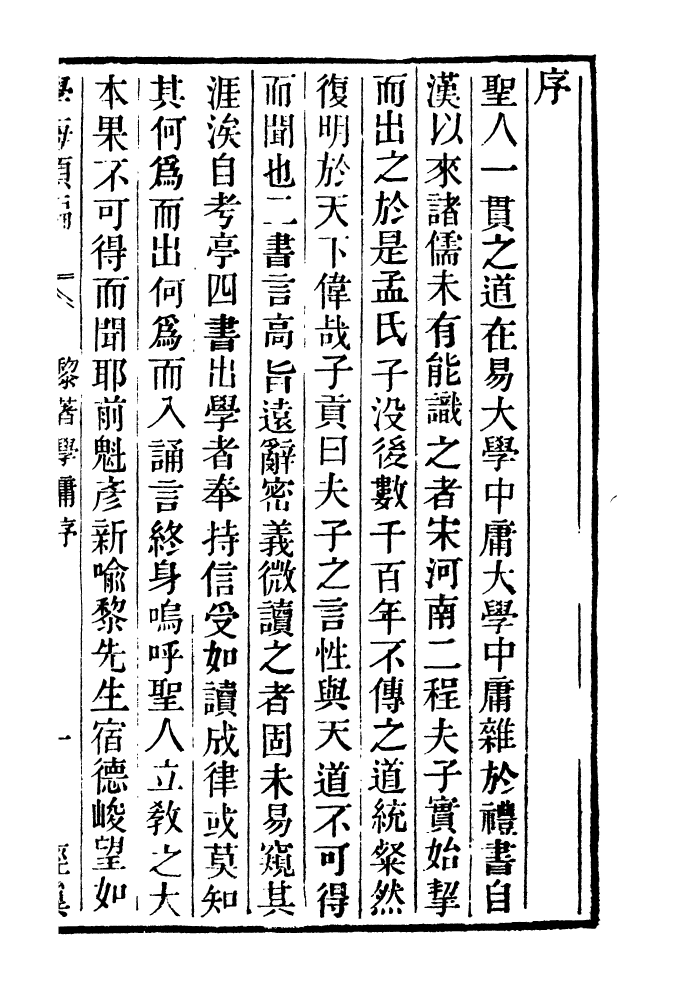 序
聖人一貫之道在易大學中庸大學中庸雜於禮書自
漢以來諸儒未有能識之者宋河南二程夫子實始挈
而出之於是孟氏子没後數千百年不傳之道統粲然
復明於天下偉哉子貢曰夫子之言性與天道不可得
而聞也二書言高旨遠辭密義微讀之者固未易窺其
涯涘自考亭四書出學者奉持信受如讀成律或莫知
其何爲而出何爲而入誦言終身嗚呼聖人立教之大
本果不可得而聞耶前魁彥新喻黎先生宿德峻望如
學海類編 黎著學庸序 一 經翼